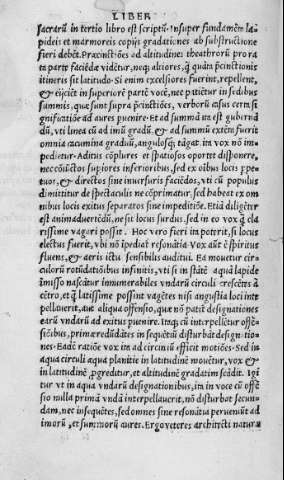 LIBER
sacrarũ in tertio libro est scriptũ. Insuper fundamẽta la,
pideis et marmoreis copijs gradationes ab substructione
fieri debẽt. Præcinctiões ad altitudines theatrorũ prora
ta parte faciẽdæ vidẽtur, neq; altiores, q̃ quãta p̃cinctionis
itineris sit latitudo. Si enim excelsiores fuerint, repellent,
& eijciẽt in superiorẽ partẽ vocẽ, nec patiẽtur in sedibus
summis, quæ sunt supra p̃cinctiões, verborũ casus certa si
gnificatiõe ad aures puenire. Et ad summã ita est guberná
dũ, vti linea cũ ad imũ gradũ & ad summũ extẽta fuerit
omnia cacumina graduũ, angulosq; tãgat. ita vox nõ im,
pedietur. Aditus cõplures et spatiosos oportet disponere,
nec cõiũctos supiores inferioribus, sed ex oĩbus locis p̱pe
tuos, & directos sine inuersuris faciẽdos, vti cũ populus
dimittitur de spectaculis ne cõprimatur, sed habeat ex om
nibus locis exitus separatos sine impeditiõe. Etiã diligẽter
est animaduertẽdũ, ne sit locus surdus, sed in eo vox q̃ cla
rissime vagari possit. Hoc vero fieri ita poterit, si locus
electus fuerit, vbi nõ ĩpediat resonãtia. Vox aũt ẽ spiritus
fluens, & aeris ictu sensibilis auditui. Ea mouetur cir,
culorũ rotũdatiõibus infinitis, vti si in stãtẽ aquã lapide
ĩmisso nascãtur innumerabiles vndarũ circuli crescẽtes à
cẽtro, et q̃ latissime possint vagẽtes nisi angustia loci inte
pellauerit, aut aliqua offensio, quæ nõ patit̃ designationes
earũ vndarũ ad exitus puenire. Itaq; cũ interpellẽtur offẽ
siõibus, primæ redũdãtes in sequẽtiũ disturbãt designatio
nes. Eadẽ ratiõe vox ita ad circinũ efficit motiões. Sed in
aqua circuli aqua planitie in latitudinẽ mouẽtur, vox &
in latitudinẽ p̱greditur, et altitudinẽ gradatim scãdit. Igi
tur vt in aqua vndarũ designationibus, itẽ in voce cũ offẽ
sio nulla primã vndã interpellauerit, nõ disturbat secun,
dam, nec insequẽtes, sed omnes sine resonãtia perueniũt ad
imorũ, et summorũ aures. Ergo veteres architecti naturæ